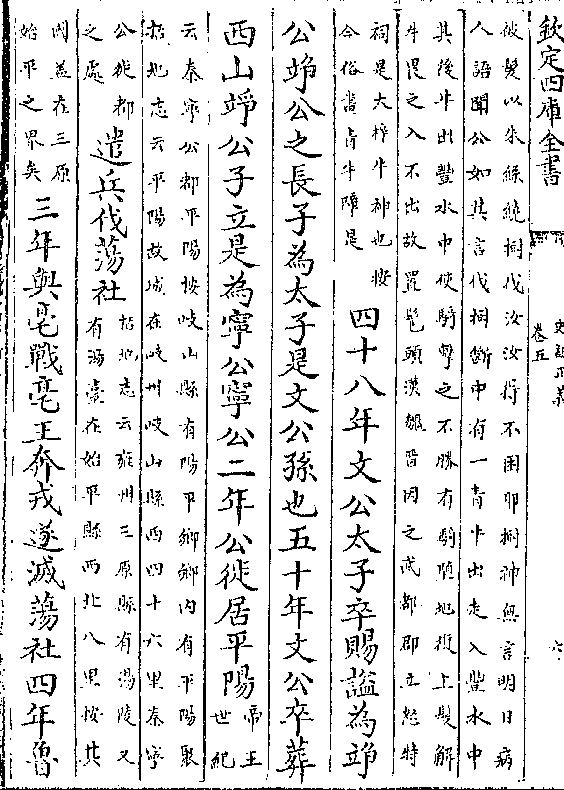 欽定四庫全書
史記正義
卷五
六
被髮以朱絲繞樹伐汝汝得不困耶樹神無言明日病
人語聞公如其言伐樹斷中有一青牛出走入豐水中
其後牛出豐水中使騎擊之不勝有騎墮地復上髮解
牛畏之入不出故置髦頭漢魏晉因之武都郡立怒特
祠是大梓牛神也按
今俗畫青牛障是
四十八年文公太子卒賜諡為竫
公竫公之長子為太子是文公孫也五十年文公卒葬
西山竫公子立是為寧公寧公二年公徙居平陽
帝王
世紀
云秦寧公都平陽按岐山縣有陽平鄉鄉內有平陽聚
括地志云平陽故城在岐州岐山縣西四十六里秦寧
公徙都
之處
遣兵伐蕩社
括地志云雍州三原縣有湯陵又
有湯臺在始平縣西北八里按其
國蓋在三原
始平之界矣
三年與亳戰亳王奔戎遂滅蕩社四年魯